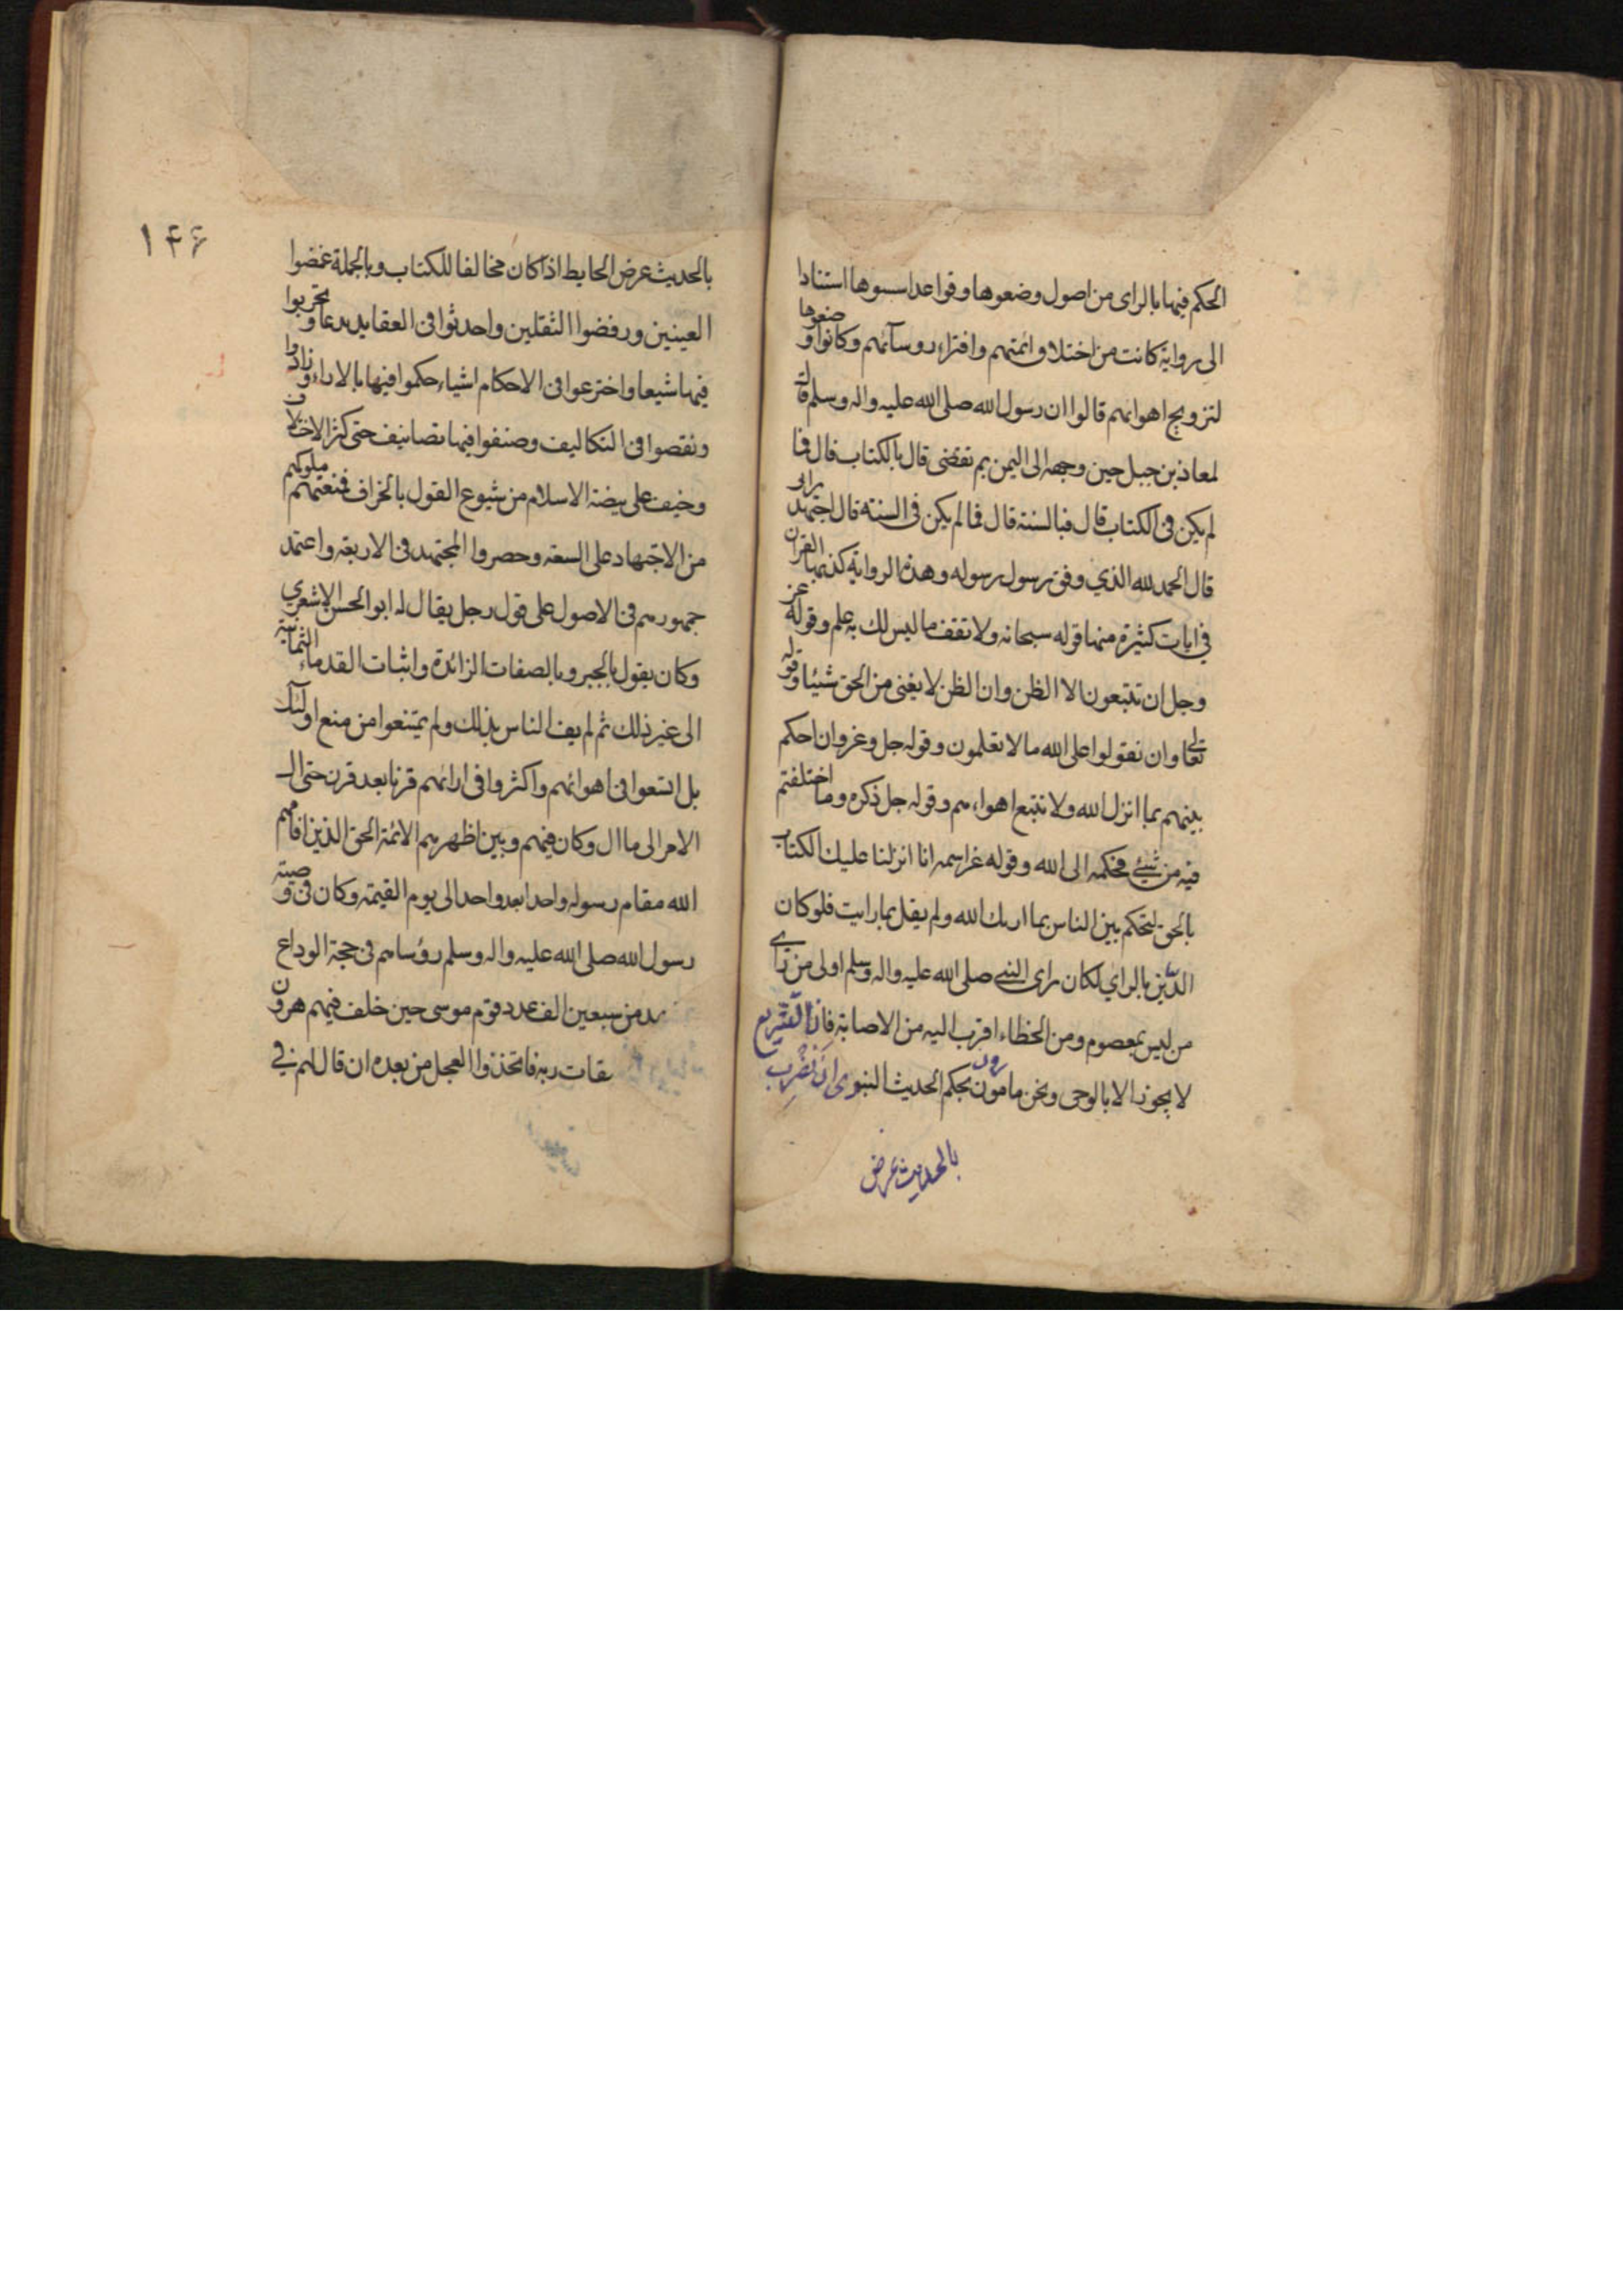 الحكم فيها بالراى من اصول وضعوها وقواعد اسسوها استنادا
الى رواية كانت من اختلاق ائمتهم وافتراء روسآئهم وكانوا وضعوها
لترويج اهوائهم قالوا ان رسول الله صلى الله عليه واله وسلم قال
لمعاذ بن جبل حين وجهه الى اليمن بم تقضى قال بالكتاب قال فما
لم يكن فى الكتاب قال فبالسنة قال فما لم يكن فى السنة قال اجتهد برائى
قال الحمد لله الذي وفق رسول رسوله وهذه الرواية كذبها القران
في ايات كثيرة منها قوله سبحانه ولا تقف ما ليس لك به علم وقوله عز
وجل ان تتبعون الا الظن وان الظن لا يغنى من الحق شيئا وقوله
تعالى وان تقولوا على الله ما لا تعلمون وقوله جل وعز وان احكم
بينهم بما انزل الله ولا تتبع اهواءهم وقوله جل ذكره وما اختلفتم
فيه من شيئ فحكمه الى الله وقوله عز اسمه انا انزلنا عليك الكتاب
بالحق لتحكم بين الناس بما اريك الله ولم يقل بما رايت فلو كان
الدّين بالراي لكان راى النبي صلى الله عليه واله وسلم اولى من راي
من ليس بمعصوم ومن الخطاء اقرب اليه من الاصابة فاذا التشريع
لا يجوز الا بالوحى ونحن مامورون بحكم الحديث النبوى ان نضرب
بالحديث عرض
۱۴۶
بالحديث عرض الحايط اذا كان مخالفا للكتاب وبالجملة غمضوا
العينين ورفضوا الثقلين واحدثوا فى العقايد بدعا وتحزبوا
فيها شيعا واخترعوا فى الاحكام اشياء حكموا فيها بالاراء وزادوا
ونقصوا فى التكاليف وصنفوا فيها تصانيف حتى كثر الاختلاف
وخيف على بيضة الاسلام من شيوع القول بالخراف فمنعتهم ملوكهم
من الاجتهاد على السعة وحصروا المجتهد فى الاربعة واعتمد
جمهورهم فى الاصول على قول رجل يقال له ابو الحسن الاشعري
وكان يقول بالجبر وبالصفات الزائدة واثبات القدماء الثمانية
الى غير ذلك ثم لم يف الناس بذلك ولم يمتنعوا من منع اولئك
بل اتسعوا فى اهوائهم واكثروا فى ارائهم قرنا بعد قرن حتى ال
الامر الى ما ال وكان فيهم وبين اظهرهم الائمة الحق الذين اقامهم
الله مقام رسوله واحدا بعد واحد الى يوم القيمة وكان فى وصية
رسول الله صلى الله عليه واله وسلم روساهم فى حجة الوداع
من سبعين الف عدد قوم موسى حين خلف فيهم هرون
ربه فاتخذوا العجل من بعده ان قال لهم في